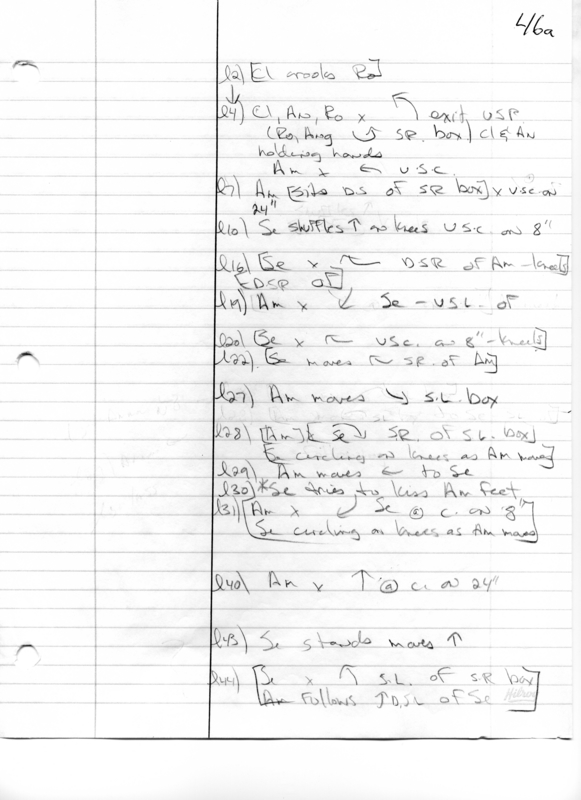 46a
l2) [Cl crooks Ro]
↓
l4) Cl, An, Ro x ↖ exit USP
(Ro, Ang ⤻ SR. box) Cl & An
holding hands
Am x ← U.S.C.
l7) Am [Sits D.S of SR box] x U.S.C. on
24"
l10) Se shuffles ↑ on knees U.S.C. on 8"
l16) [Se x ↖ DSR of Am - kneels]
[DSP of]
l19) [Am x ↙ Se - USL. of
l20) [Se x ↖ USC. on 8" - kneels]
l22) [Se moves ↖ SR. of Am]
l27) Am moves ↘ S.L. box
l28) [Am] x [Se ↘ SR. OF S.L. box]
[Se circling on knees as Am moves]
l29) Am moves ← to Se
l30) *Se tries to kiss Am feet
l31) [Am x ↙ Se @ c. on 8"
Se circling on knees as Am moves]
l40) Am x ↑ @ c. on 24"
l43) Se stands moves ↑
l44) [Se x ↖ S.L. of S.R box
Am Follows ↑ D.S.L of Se]
Hilroy